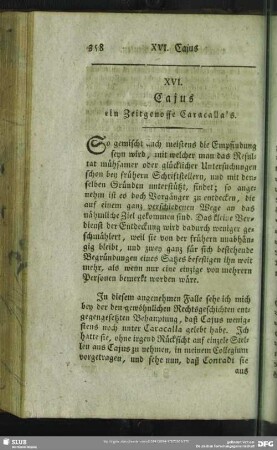 358 XVI. Cajus
XVI.
Cajus
ein Zeitgenosse Caracalla's.
So gemischt auch meistens die Empfindung
seyn wird, mit welcher man das Resul-
tat mühsamer oder glücklicher Untersuchungen
schon bey frühern Schriftstellern, und mit den-
selben Gründen unterstützt, findet; so ange-
nehm ist es doch Vorgänger zu entdecken, die
auf einem ganz verschiedenen Wege an das
nähmliche Ziel gekommen sind. Das kleine Ver-
dienst der Entdeckung wird dadurch weniger ge-
schmählert, weil sie von der frühern unabhän-
gig bleibt, und zwey ganz für sich bestehende
Begründungen eines Satzes befestigen ihn weit
mehr, als wenn nur eine einzige von mehrern
Personen bemerkt worden wäre.
In diesem angenehmen Falle sehe ich mich
bey der den gewöhnlichen Rechtsgeschichten ent-
gegengesetzten Behauptung, daß Cajus wenig-
stens noch unter Caracalla gelebt habe. Ich
hatte sie, ohne irgend Rücksicht auf einzele Stel-
len aus Cajus zu nehmen, in meinem Collegium
vorgetragen, und sehe nun, daß Conradi sie
aus
SLUB
Wir führen Wissen.
gefördert von der
DFG